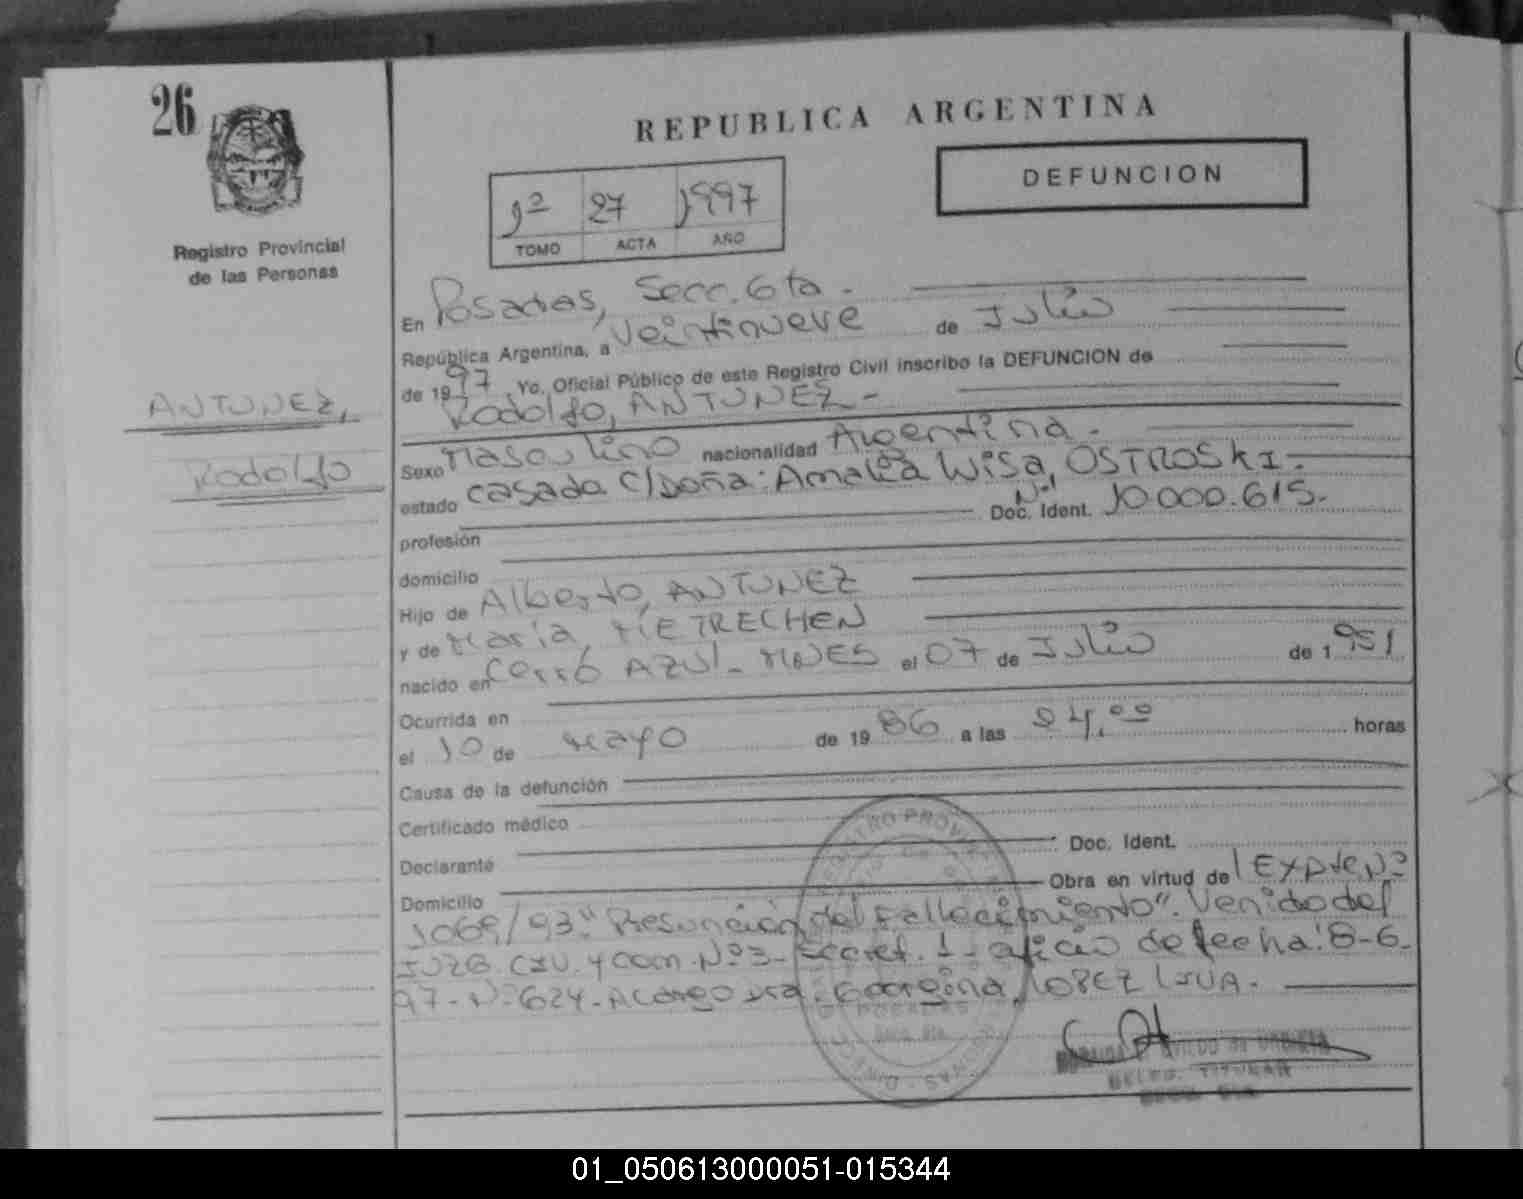 26
Registro Provincial
de las Personas
REPUBLICA ARGENTINA
DEFUNCION
1º 27 1997
TOMO ACTA AÑO
En Posadas, Secc. 6ta.
República Argentina, a Veintinueve de Julio
de 1997 Yo, Oficial Público de este Registro Civil inscribo la DEFUNCION de
Rodolfo, ANTUNEZ.-
ANTUNEZ,
Rodolfo
Sexo Masculino nacionalidad Argentina.
estado casado c/Doña: Amalia Wisa, OSTROSKI.
profesión Doc. Ident. Nº 10.000.615.
domicilio
Hijo de Alberto, ANTUNEZ
y de María, PIETRECHEN
nacido en Cerró AZUl - MNES el 07 de Julio de 1951
Ocurrida en
el 10 de mayo de 1986 a las 24,00 horas
Causa de la defunción
Certificado médico
Declarante Doc. Ident.
Domicilio Obra en virtud de Expte Nº
1069/93 "Presunción del Fallecimiento". Venido del
JUZG. CIV. y Com. Nº 3 - Secret. 1 - oficio de fecha: 8-6-
97 - Nº 624 - A cargo Dra. Georgina, LOPEZ
REGISTRO PROVINCIAL
POSADAS
DELEG. TITULAR
01_050613000051-015344